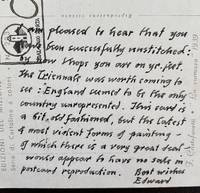 am pleased to hear that you
have been successfully unstitched:
by now I hope you are on yr. feet.
The Triennale was worth coming to
see: England seemed to be the only
country unrepresented. This card is
a bit old fashioned, but the latest
& most violent forms of painting -
of which there is a very great deal -
would appear to have no sale in
postcard reproduction. Best wishes
Edward